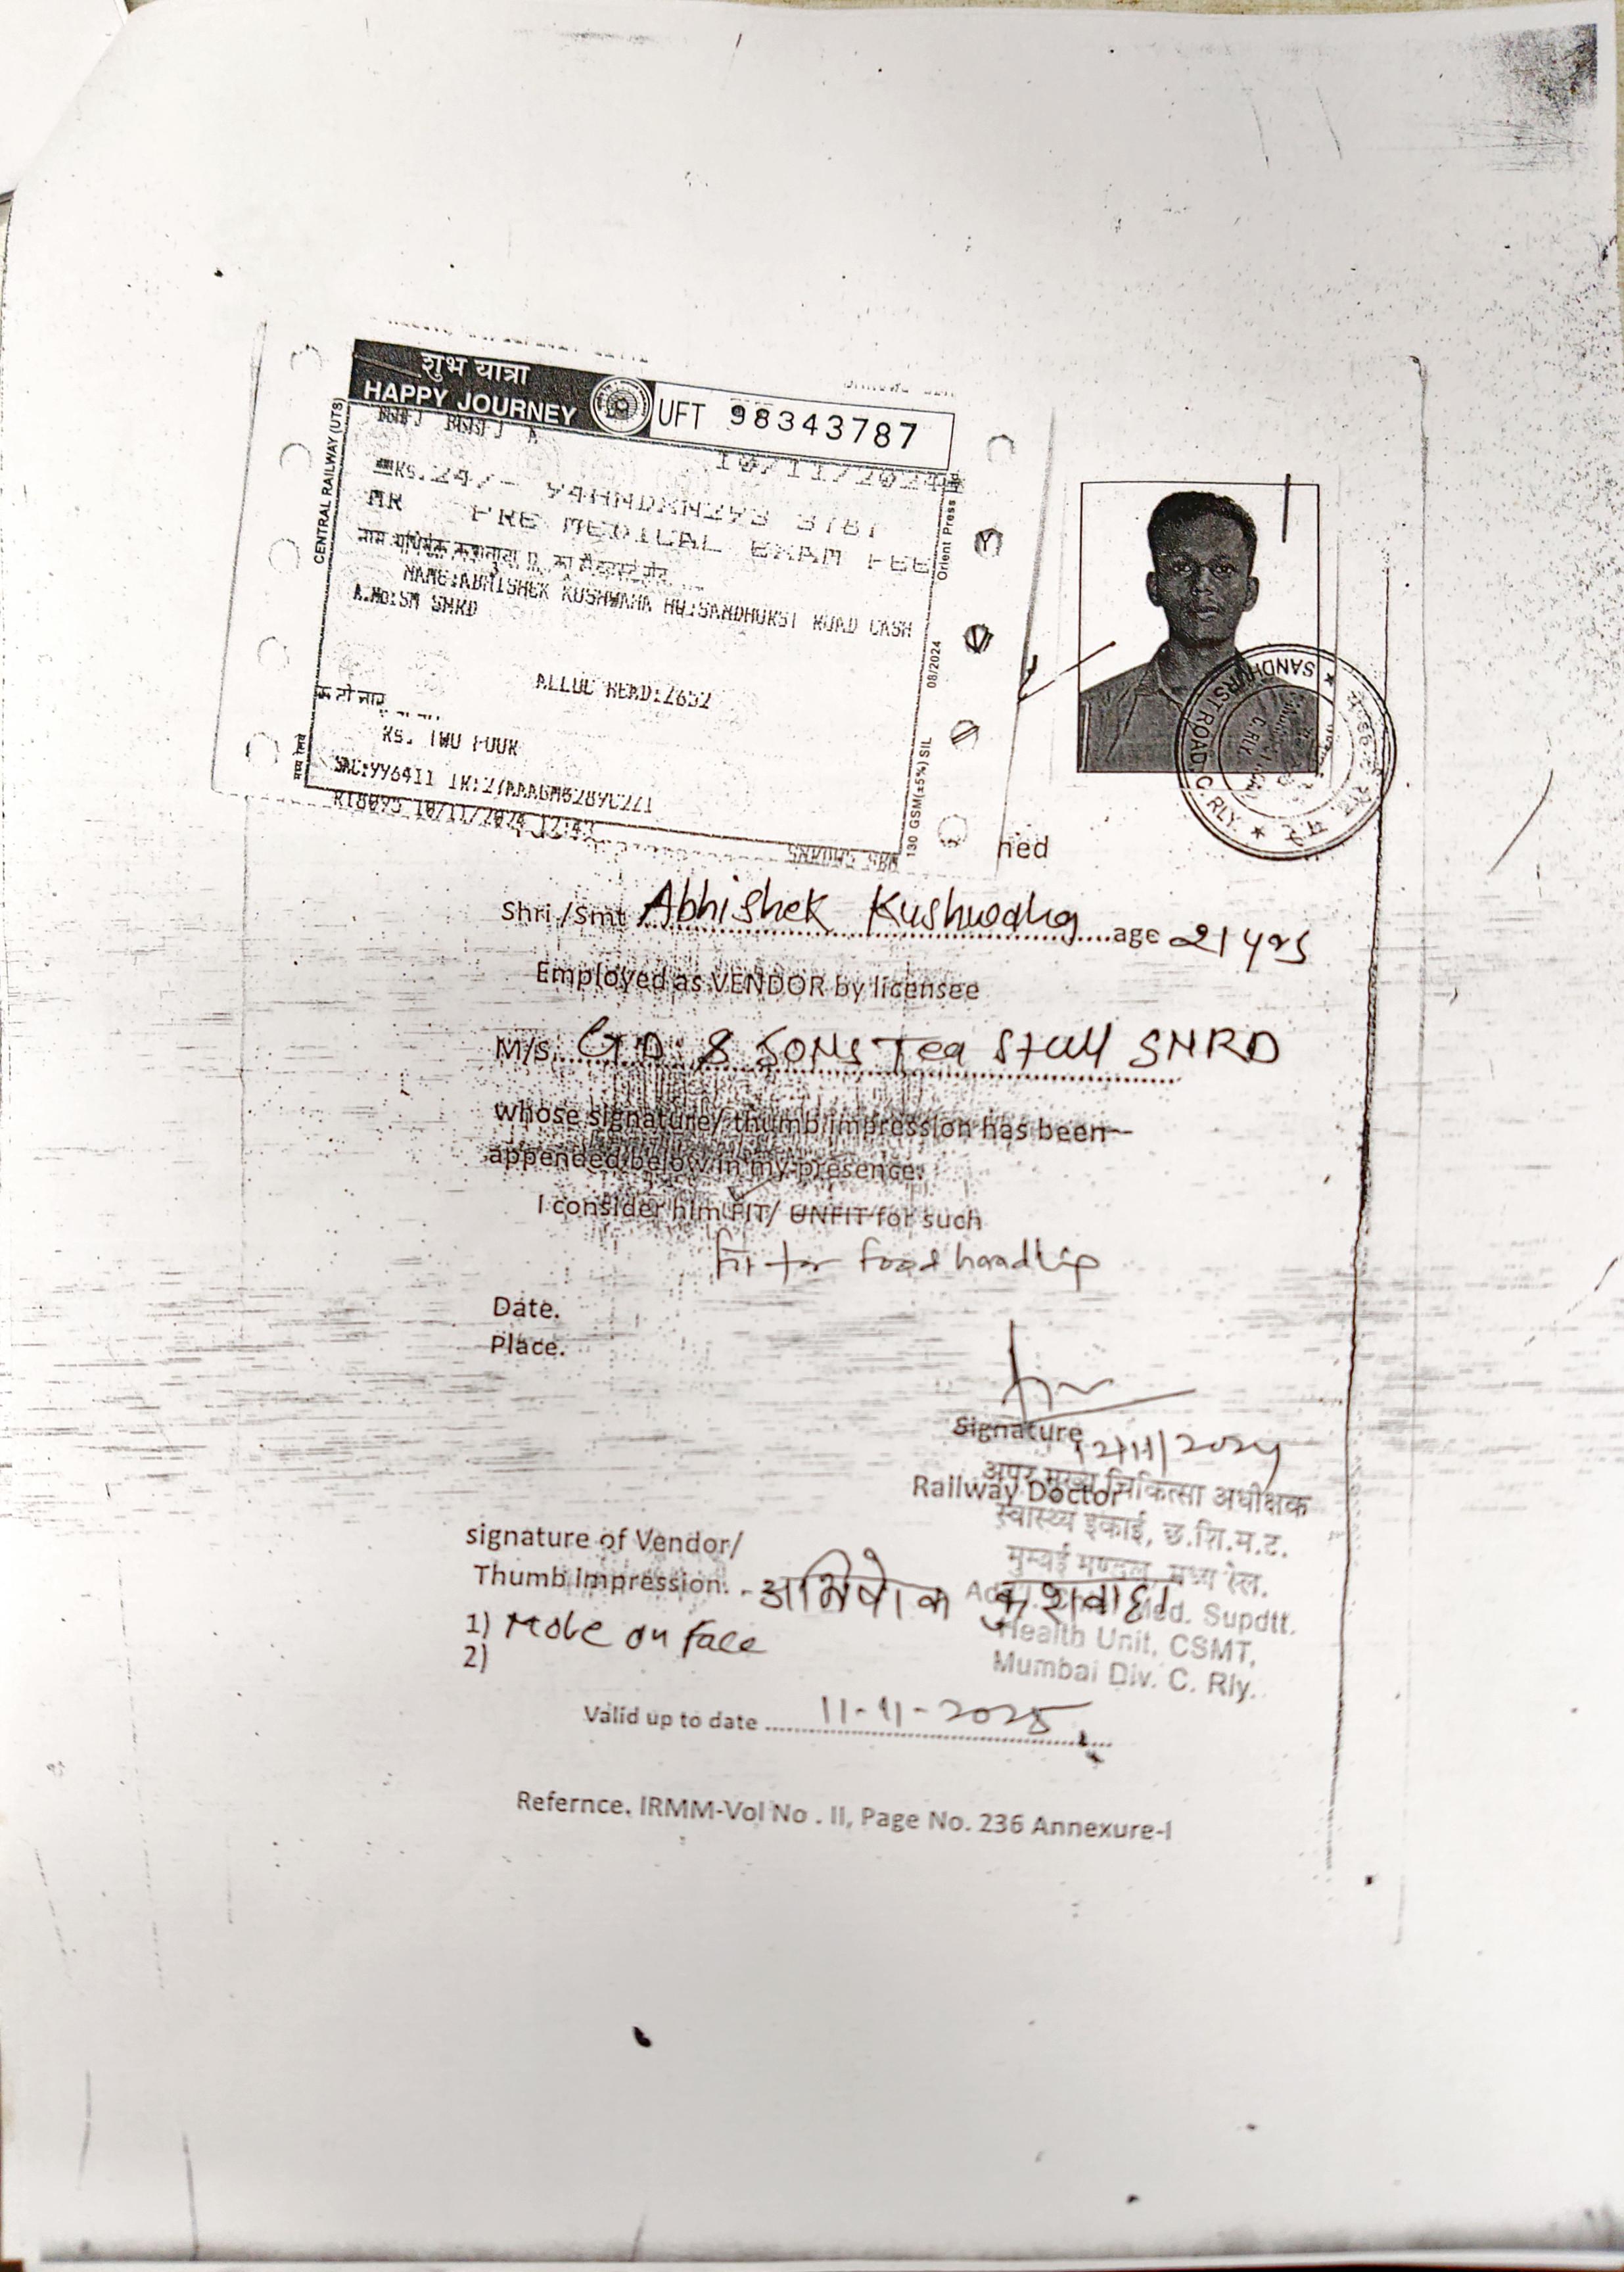 शुभ यात्रा
HAPPY JOURNEY
UFT 98343787
CENTRAL RAILWAY (UTS)
10/11/2024
Rs.24/-
MR PRE MEDICAL EXAM FEE
NAME:ABHISHEK KUSHWAHA HQ:SANDHURST ROAD CASH
A.NO:SM SNRD
ALLOC HEAD:Z652
Rs. TWO FOUR
10/11/2024 12:43
Orient Press
08/2024
130 GSM(±5%) SIL
SANDHURST ROAD C. RLY.
ned
Shri /Smt Abhishek Kushwaha age 21 yrs
Employed as VENDOR by licensee
M/S. G.D. & Sons Tea Stall SNRD
whose signature/ thumb impression has been
appended below in my presence.
I consider him FIT/ UNFIT for such
Fit for food handling
Date.
Place.
Signature
12/11/2024
Railway Doctor
अपर मुख्य चिकित्सा अधीक्षक
स्वास्थ्य इकाई, छ.शि.म.ट.
मुम्बई मण्डल, मध्य रेल.
Med. Supdtt.
Health Unit, CSMT,
Mumbai Div. C. Rly.
signature of Vendor/
Thumb impression. अभिषेक कुशवाहा
1) Mole on face
2)
Valid up to date 11-11-2025
Refernce. IRMM-Vol No . II, Page No. 236 Annexure-I